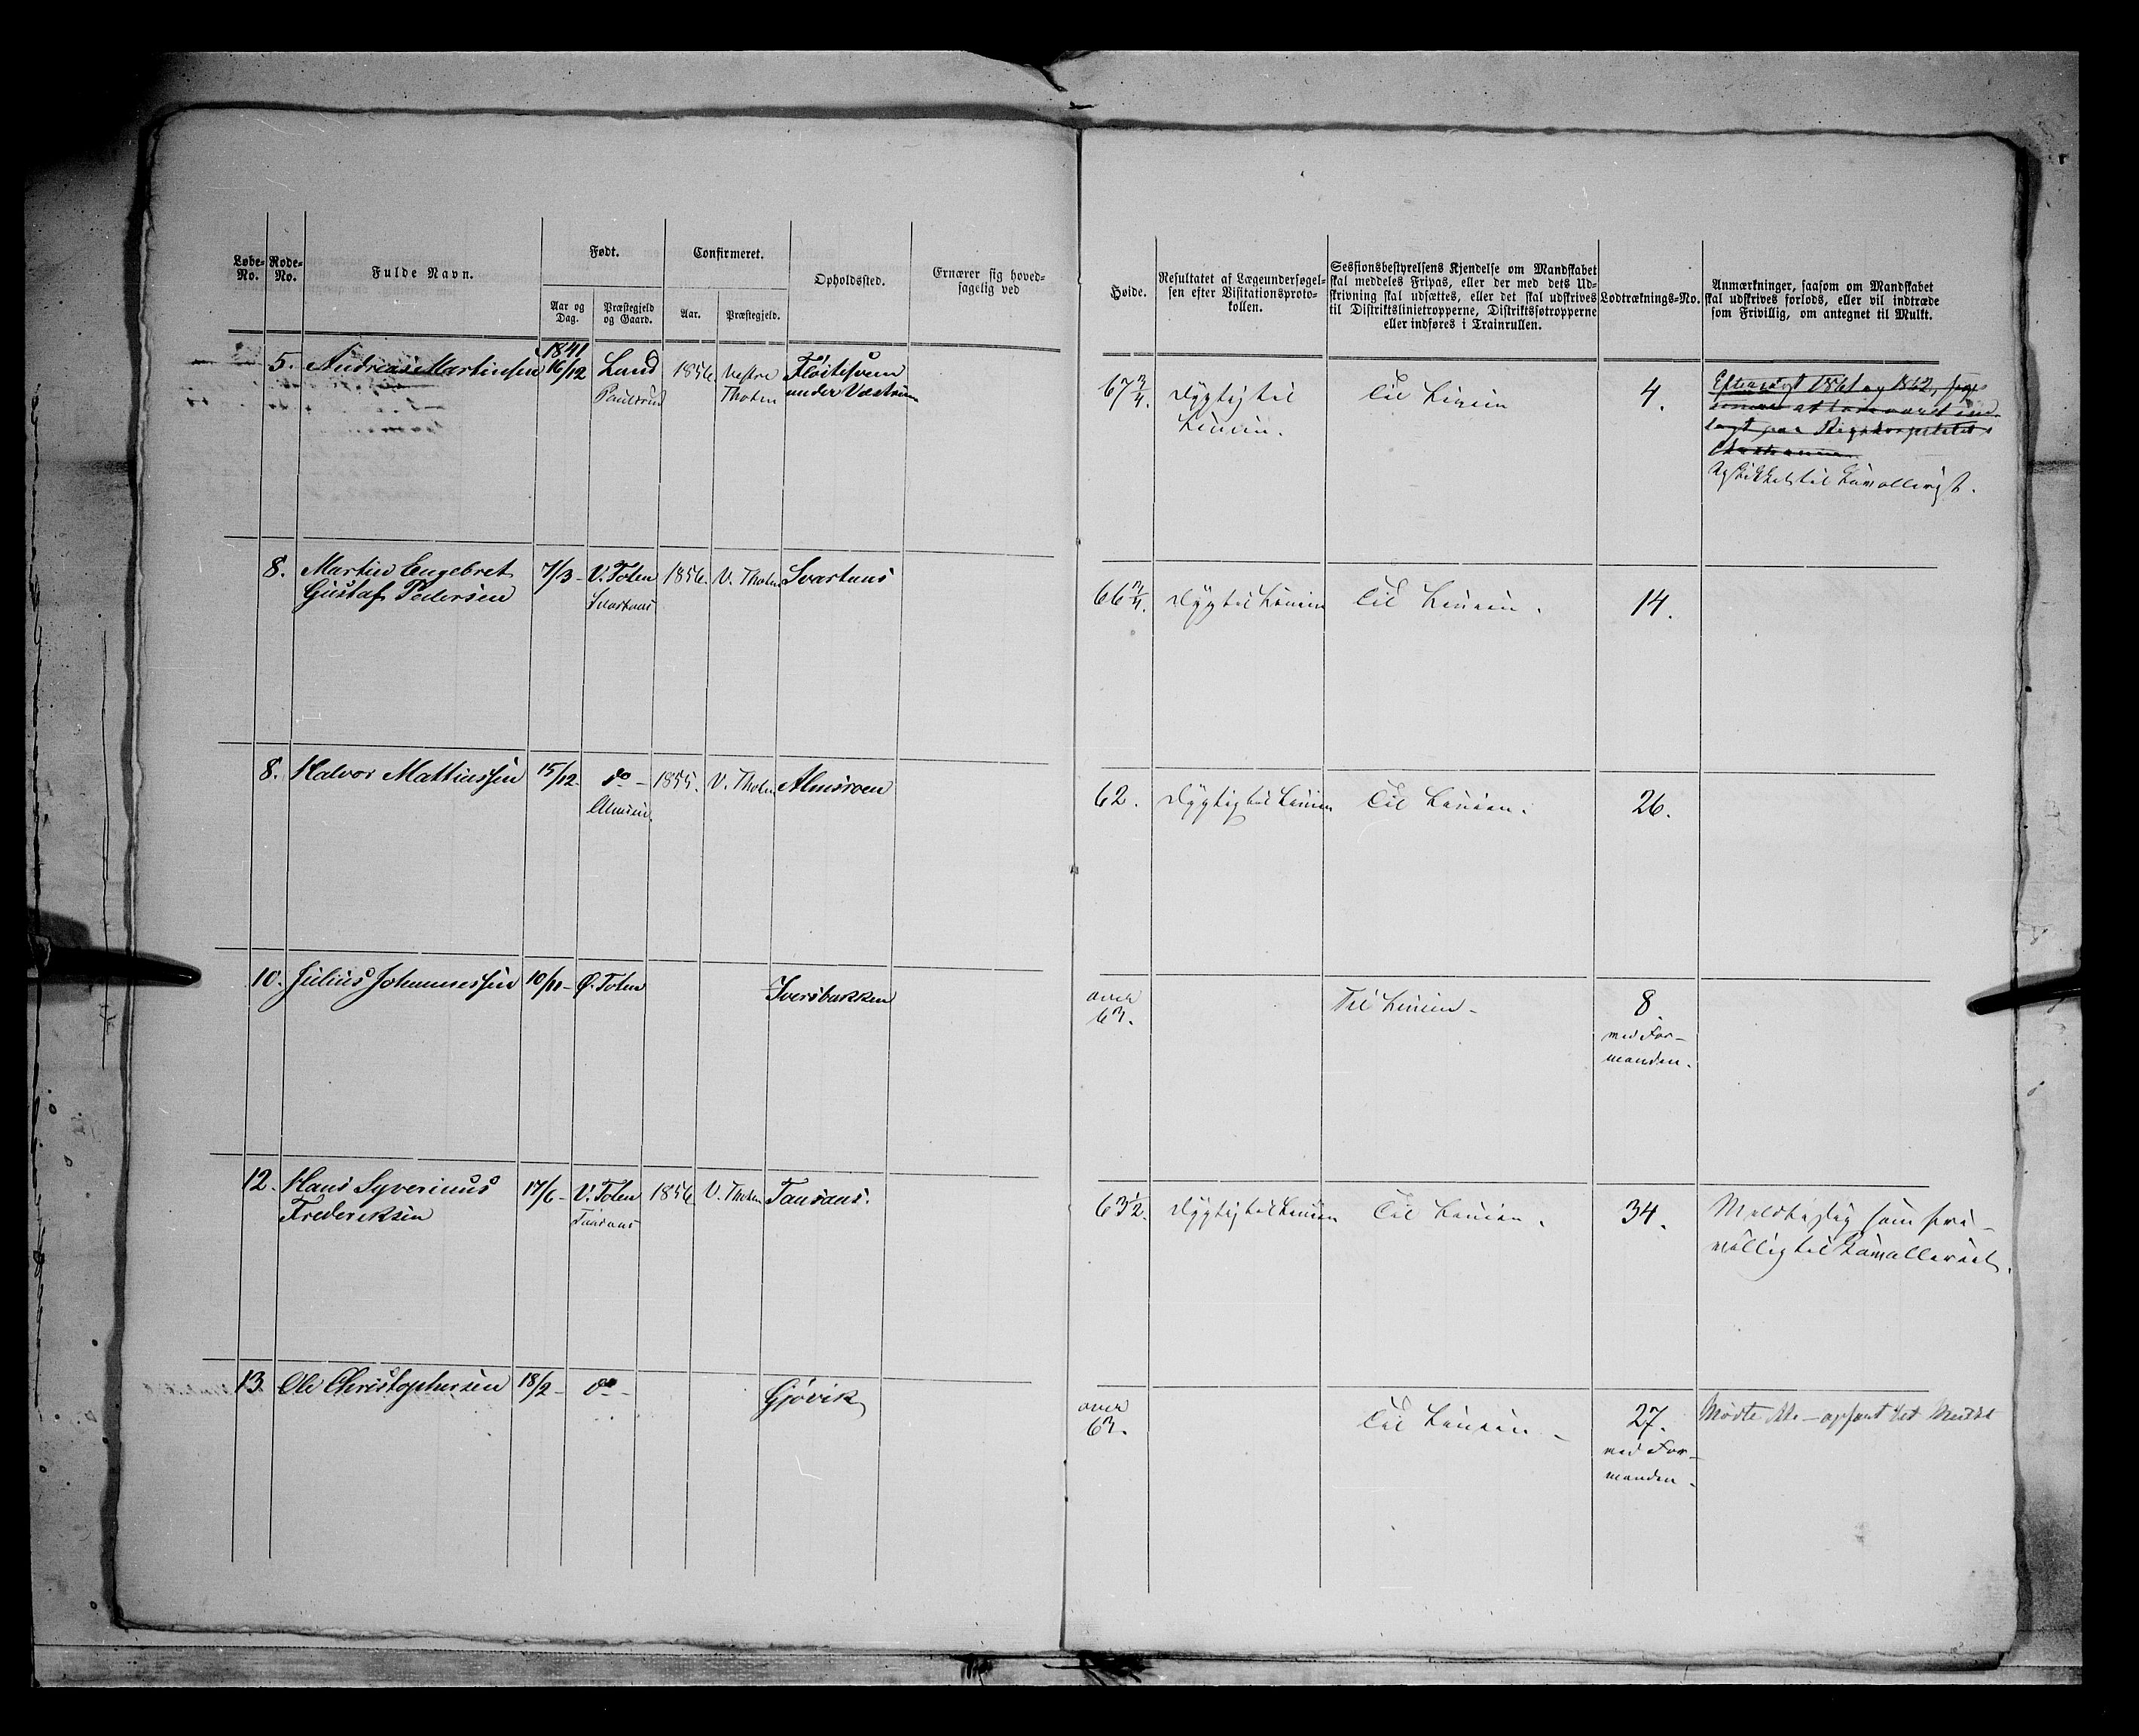 Løbe-No.
Rode-No.
Fulde Navn.
Født.
Aar og Dag.
Præstegjeld og Gaard.
Confirmeret.
Aar.
Præstegjeld.
Opholdssted.
Ernærer sig hoved-
sagelig ved
Høide.
Resultatet af Lægeundersøgel-
sen efter Visitationsproto-
kollen.
Sessionsbestyrelsens Kjendelse om Mandskabet
skal meddeles Fripas, eller der med dets Ud-
skrivning skal udsættes, eller det skal udskrives
til Distriktslinietropperne, Distriktsføtropperne
eller indføres i Trainrullen.
Lodtræknings-No.
Anmærkninger, saasom om Mandskabet
skal udskrives forlods, eller vil indtræde
som Frivillig, om antegnet til Mulkt.
5. Andreas Martinsen 1841 16/12 Land Paulsrud 1856 Vestre Thoten
under
67 3/4. Dygtig til Linien.
Til Linien
4.
Eftersøgt 1861 og 1862,
8. Martin Engebret
Gustaf Pedersen
7/3 - V. Toten 1856. V. Thoten Svartuns
66 3/4. Dygtil Linien Til Linien. 14.
8. Halvor Mathiassen 15/12 - do - 1855. V. Thoten Alnisroen
62. Dygtig til Linien Til Linien. 26.
10. Julius Johannessen 10/11 - Ø. Toten Iversbakken
over
63.
Til Linien -
8.
med For-
manden.
12. Hans Syverinus
Frederiksen
17/6 - V. Toten 1856 V. Thoten Tansans.
63 1/2. Dygtig til Linien Til Linien. 34.
Meldte sig som fri-
villig til Kavalleriet.
13 Ole Christophersen 18/2 - do - Gjøvik
over
63.
Til Linien -
27.
med For-
manden.
Mødte ikke - til Mulkt